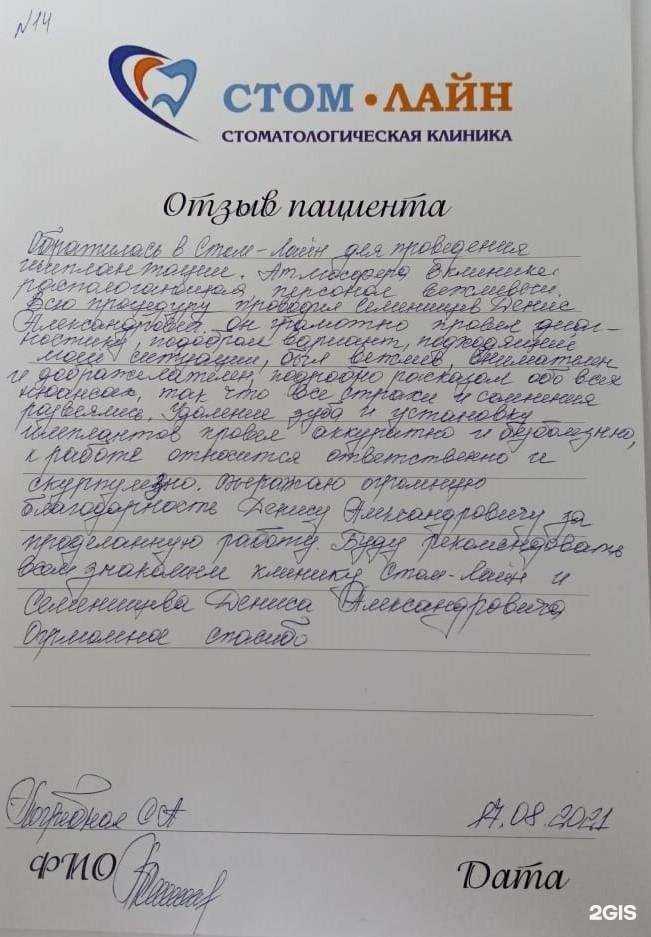 №14
СТОМ•ЛАЙН
СТОМАТОЛОГИЧЕСКАЯ КЛИНИКА
Отзыв пациента
Обратилась в Стом-Лайн для проведения
имплантации. Атмосфера в клинике
распологающая персонал вежливый.
Всю процедуру проводил Семенищев Денис
Александрович он грамотно провел диаг-
ностику, подобрал вариант, подходящий
моей ситуации, был вежлив, внимателен
и доброжелателен, подробно расказал обо всех
нюансах, так что все страхи и сомнения
развеялись. Удаление зуба и установку
имплантов провел аккуратно и безболезнено,
к работе относится ответственно и
скурпулезно. Выражаю огромную
благодарность Денису Александровичу за
проделанную работу. Буду рекомендовать
всем знакомым клинику Стом-Лайн и
Семенищева Дениса Александровича,
Огромное спасибо
С А
17.08.2021
ФИО
Дата
2GIS